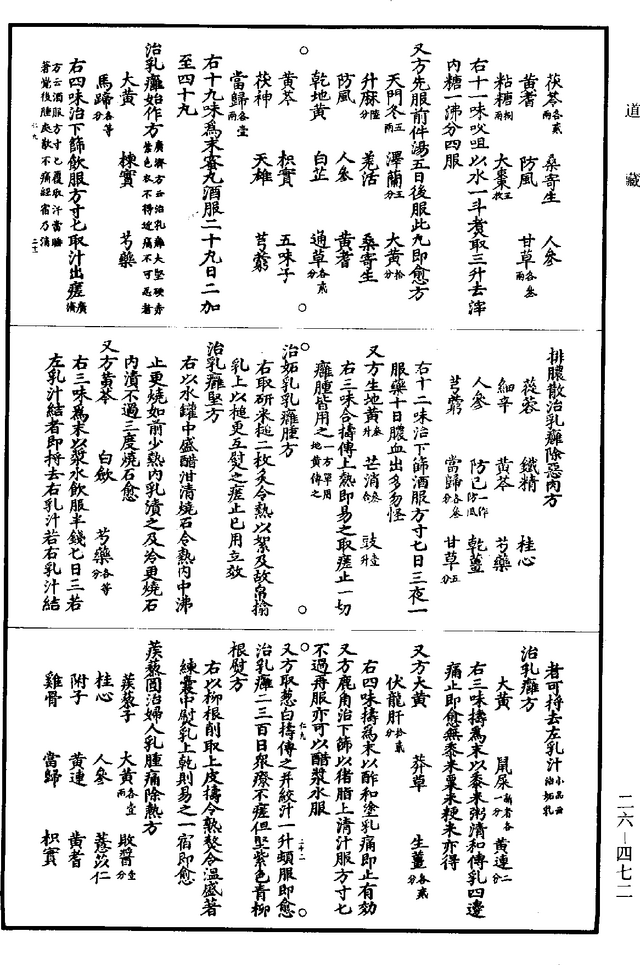 道藏
茯苓各貳兩 桑寄生 人參
黃耆 防風 甘草各叁兩
粘糖捌兩 大棗拾玉枚
右十一味㕮咀以水一斗煑取三升去滓
內糖一沸分四服
又方先服前件湯五日後服此丸即愈方
天門冬五兩 澤蘭五分 大黃拾分
升麻陸分 羗活 桑寄生
防風 人參 黃耆
乾地黃 白芷 通草各貳分
黃芩 枳實 五味子
茯神 天雄 芎藭
當歸各壹兩
右十九味為末蜜丸酒服二十九日二加
至四十九
治乳癰始作方廣濟方云治乳癰大堅硬赤紫色衣不得近痛不可忍者
大黃 楝實 芍藥
馬蹄各等分
右四味治下篩飲服方寸匕取汁出瘥廣濟
方云酒服方寸匕覆取汗當睡
著覺後腫處散不痛經宿乃消
排膿散治乳癰除惡肉方
蓯蓉 鐵精 桂心
細辛 黃芩 芍藥
人參 防己一作防風 乾薑
芎藭 當歸各叁分 甘草五分
右十二味治下篩酒服方寸匕日三夜一
服藥十日膿血出多勿怪
又方生地黃叁升 芒消叁合 豉壹升
右三味合擣傅上熱即易之取瘥止一切
癰腫皆用之一方單用地黃傅之
治妬乳乳癰腫方
右取研米槌二枚炙令熱以絮及故帛搶
乳上以槌更互熨之瘥止已用立效
治乳癰堅方
右以水罐中盛醋泔清燒石令熱內中沸
止更燒如前少熱內乳漬之及冷更燒石
內漬不過三度燒石愈
又方黃芩 白斂 芍藥各等分
右三味為末以漿水飲服半錢匕日三若
左乳汁結者即捋去右乳汁若右乳汁結
者可捋去左乳汁小品云治妬乳
治乳癰方
大黃 鼠屎新者各一分 黃連二分
右三味擣為末以黍米粥清和傅乳四邊
痛止即愈無黍米粟米粳米亦得
又方大黃 莽草 生薑各貳分
伏龍肝拾貳分
右四味擣為末以酢和塗乳痛即止有効
又方鹿角治下篩以猪脂上清汁服方寸匕
不過再服亦可以醋漿水服
又方取葱白擣傅之并絞汁一升頓服即愈
治乳癰二三百日衆療不瘥但堅紫色青柳
根熨方
右以柳根削取上皮擣令熟熬令溫盛著
練囊中熨乳上乾則易之一宿即愈
蒺藜圓治婦人乳腫痛除熱方
蒺藜子 大黃各壹兩 敗醬壹分
桂心 人參 薏苡仁
附子 黃連 黃耆
雞骨 當歸 枳實
二六—四七二